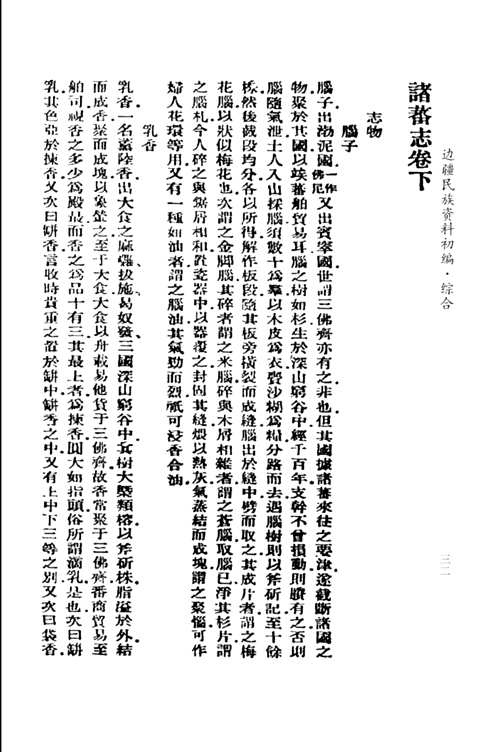 边疆民族资料初编·综合
三二
諸蕃志卷下
志物
腦子
腦子出渤泥國一作佛尼又出賓窣國世謂三佛齊亦有之非也但其國據諸蕃來往之要津遂截斷諸國之
物聚於其國以竢蕃舶貿易耳腦之樹如杉生於深山窮谷中經千百年支幹不曾損動則賸有之否則
腦隨氣泄土人入山採腦須數十為羣以木皮為衣賷沙糊為糧分路而去遇腦樹則以斧斫記至十餘
株然後截段均分各以所得解作板段隨其板旁橫裂而成縫腦出於縫中劈而取之其成片者謂之梅
花腦以狀似梅花也次謂之金脚腦其碎者謂之米腦碎與木屑相雜者謂之蒼腦取腦已淨其杉片謂
之腦札今人碎之與鋸屑相和置瓷器中以器覆之封固其縫煨以熱灰氣蒸結而成塊謂之聚腦可作
婦人花環等用又有一種如油者謂之腦油其氣勁而烈祇可浸香合油
乳香
乳香一名薰陸香出大食之麻囉拔施曷奴發三國深山窮谷中其樹大槩類榕以斧斫株脂溢於外結
而成香聚而成塊以象輦之至于大食大食以舟載易他貨于三佛齊故香常聚于三佛齊番商貿易至
舶司視香之多少為殿最而香之為品十有三其最上者為揀香圓大如指頭俗所謂滴乳是也次曰缾
乳其色亞於揀香又次曰缾香言收時貴重之置於缾中缾香之中又有上中下三等之別又次曰袋香